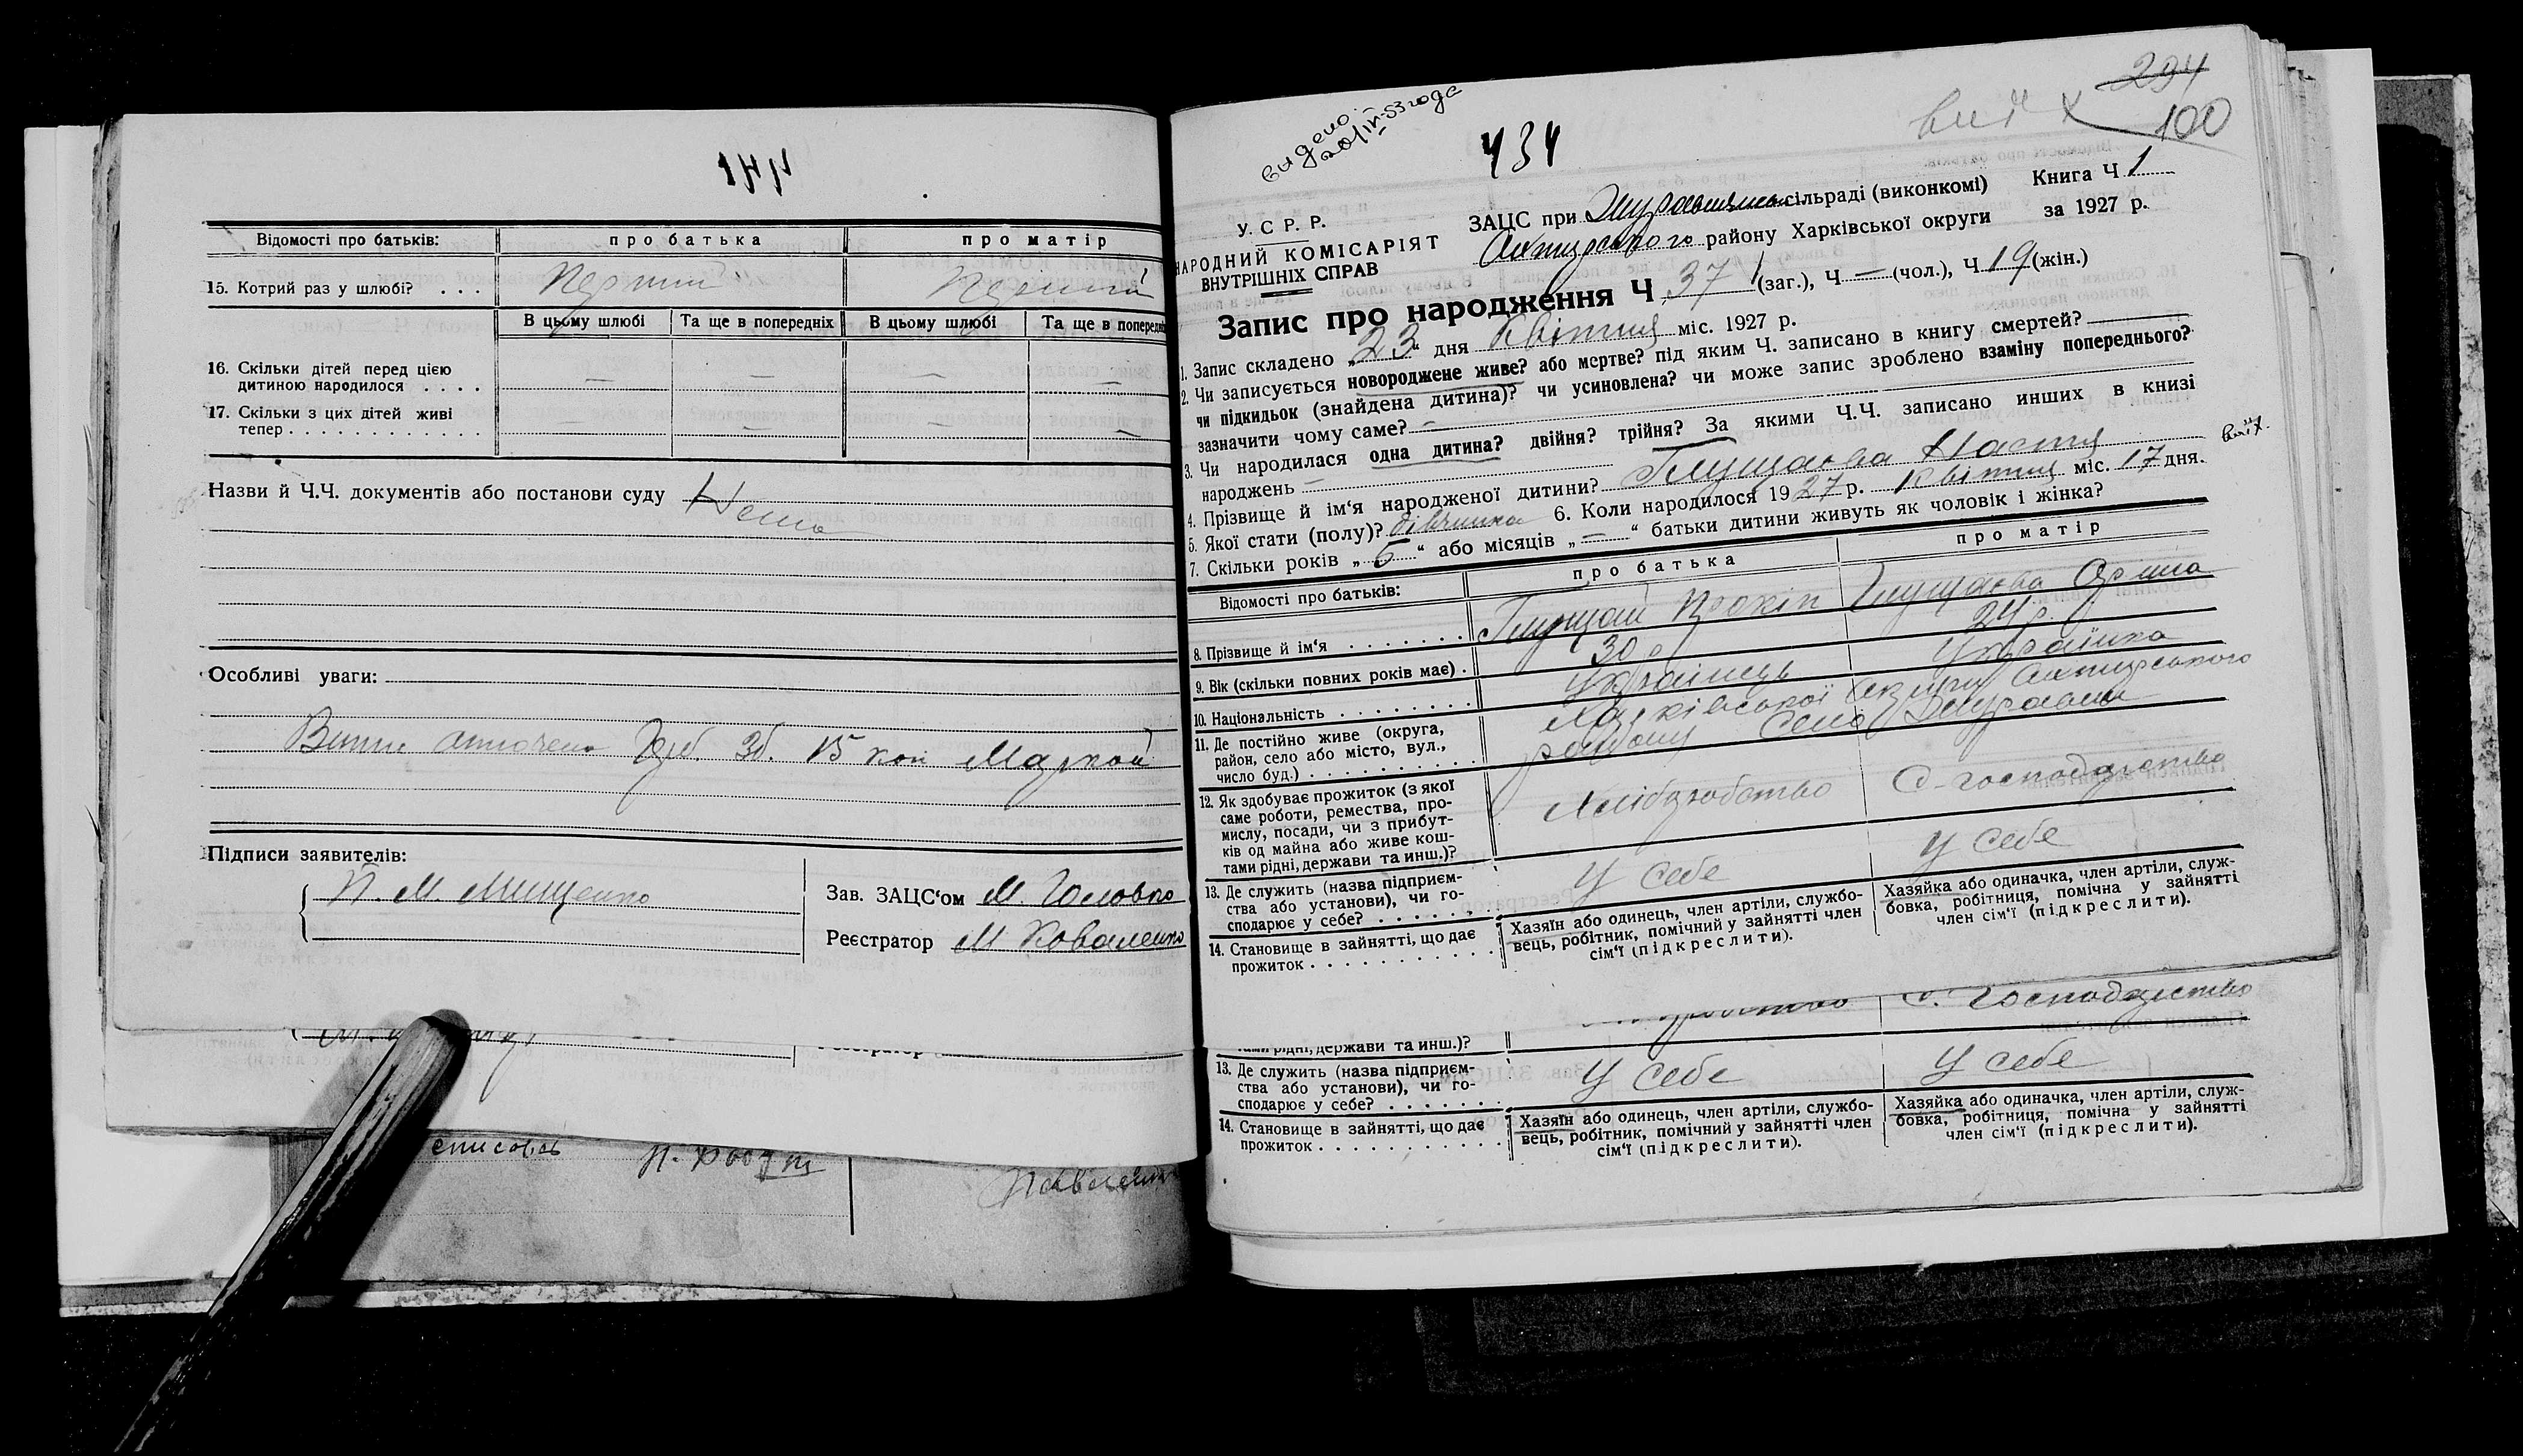 Відомості про батьків:
про батька
про матір
15. Котрий раз у шлюбі? . . .
Перший
Перший
В цьому шлюбі
Та ще в попередніх
В цьому шлюбі
Та ще в попередніх
16. Скільки дітей перед цією
дитиною народилося . . . .
—
—
—
—
17. Скільки з цих дітей живі
тепер . . . . . . . . . . . .
—
—
—
—
Назви й Ч.Ч. документів або постанови суду Нема
Особливі уваги:
Зб. 15 коп
Підписи заявителів:
П. М. Мищенко
Зав. ЗАЦС‘ом М. Головко
Реєстратор М Коваленко
видено
года
434
294
100
У. С Р. Р.
НАРОДНИЙ КОМІСАРІЯТ
ВНУТРІШНІХ СПРАВ
ЗАЦС при Журавлянськ сільраді (виконкомі)
Книга Ч 1
Охтирського району Харківської округи
за 1927 р.
Запис про народження Ч 37 (заг.), Ч — (чол.), Ч 19 (жін.)
1. Запис складено „23“ дня Квітня міс. 1927 р.
2. Чи записується новороджене живе? або мертве? під яким Ч. записано в книгу смертей?
чи підкидьок (знайдена дитина)? чи усиновлена? чи може запис зроблено взаміну попереднього?
зазначити чому саме? —
3. Чи народилася одна дитина? двійня? трійня? За якими Ч.Ч. записано инших в книзі
народжень —
4. Прізвище й ім‘я народженої дитини? Глущаєва Настя
5. Якої стати (полу)? дівчинка 6. Коли народилося 1927 р. Квітня міс. 17 дня.
7. Скільки років „6“ або місяців „—“ батьки дитини живуть як чоловік і жінка?
Відомості про батьків:
про батька
про матір
8. Прізвище й ім‘я . . . . . . .
Глущай Прокіп
Глущаєва Орина
9. Вік (скільки повних років має) .
30 р
24 р.
10. Національність . . . . . . . .
Українець
Українка
11. Де постійно живе (округа,
район, село або місто, вул.,
число буд.) . . . . . . . . . .
Харківської округи Охтирського
району Село Журавни
12. Як здобуває прожиток (з якої
саме роботи, ремества, про-
мислу, посади, чи з прибут-
ків од майна або живе кош-
тами рідні, держави та инш.)?
Хліборобство
С-господарство
13. Де служить (назва підприєм-
ства або установи), чи го-
сподарює у себе? . . . . . .
У себе
У себе
14. Становище в зайнятті, що дає
прожиток . . . . . . . . . . .
Хазяїн або одинець, член артіли, службо-
вець, робітник, помічний у зайнятті член
сім‘ї (підкреслити).
Хазяйка або одиначка, член артіли, служ-
бовка, робітниця, помічна у зайнятті
член сім‘ї (підкреслити).
С. Господарство
тами рідні, держави та инш.)?
13. Де служить (назва підприєм-
ства або установи), чи го-
сподарює у себе? . . . . . . .
У себе
У себе
14. Становище в зайнятті, що дає
прожиток . . . . . . . . . . .
Хазяїн або одинець, член артіли, службо-
вець, робітник, помічний у зайнятті член
сім‘ї (підкреслити).
Хазяйка або одиначка, член артіли, служ-
бовка, робітниця, помічна у зайнятті
член сім‘ї (підкреслити).